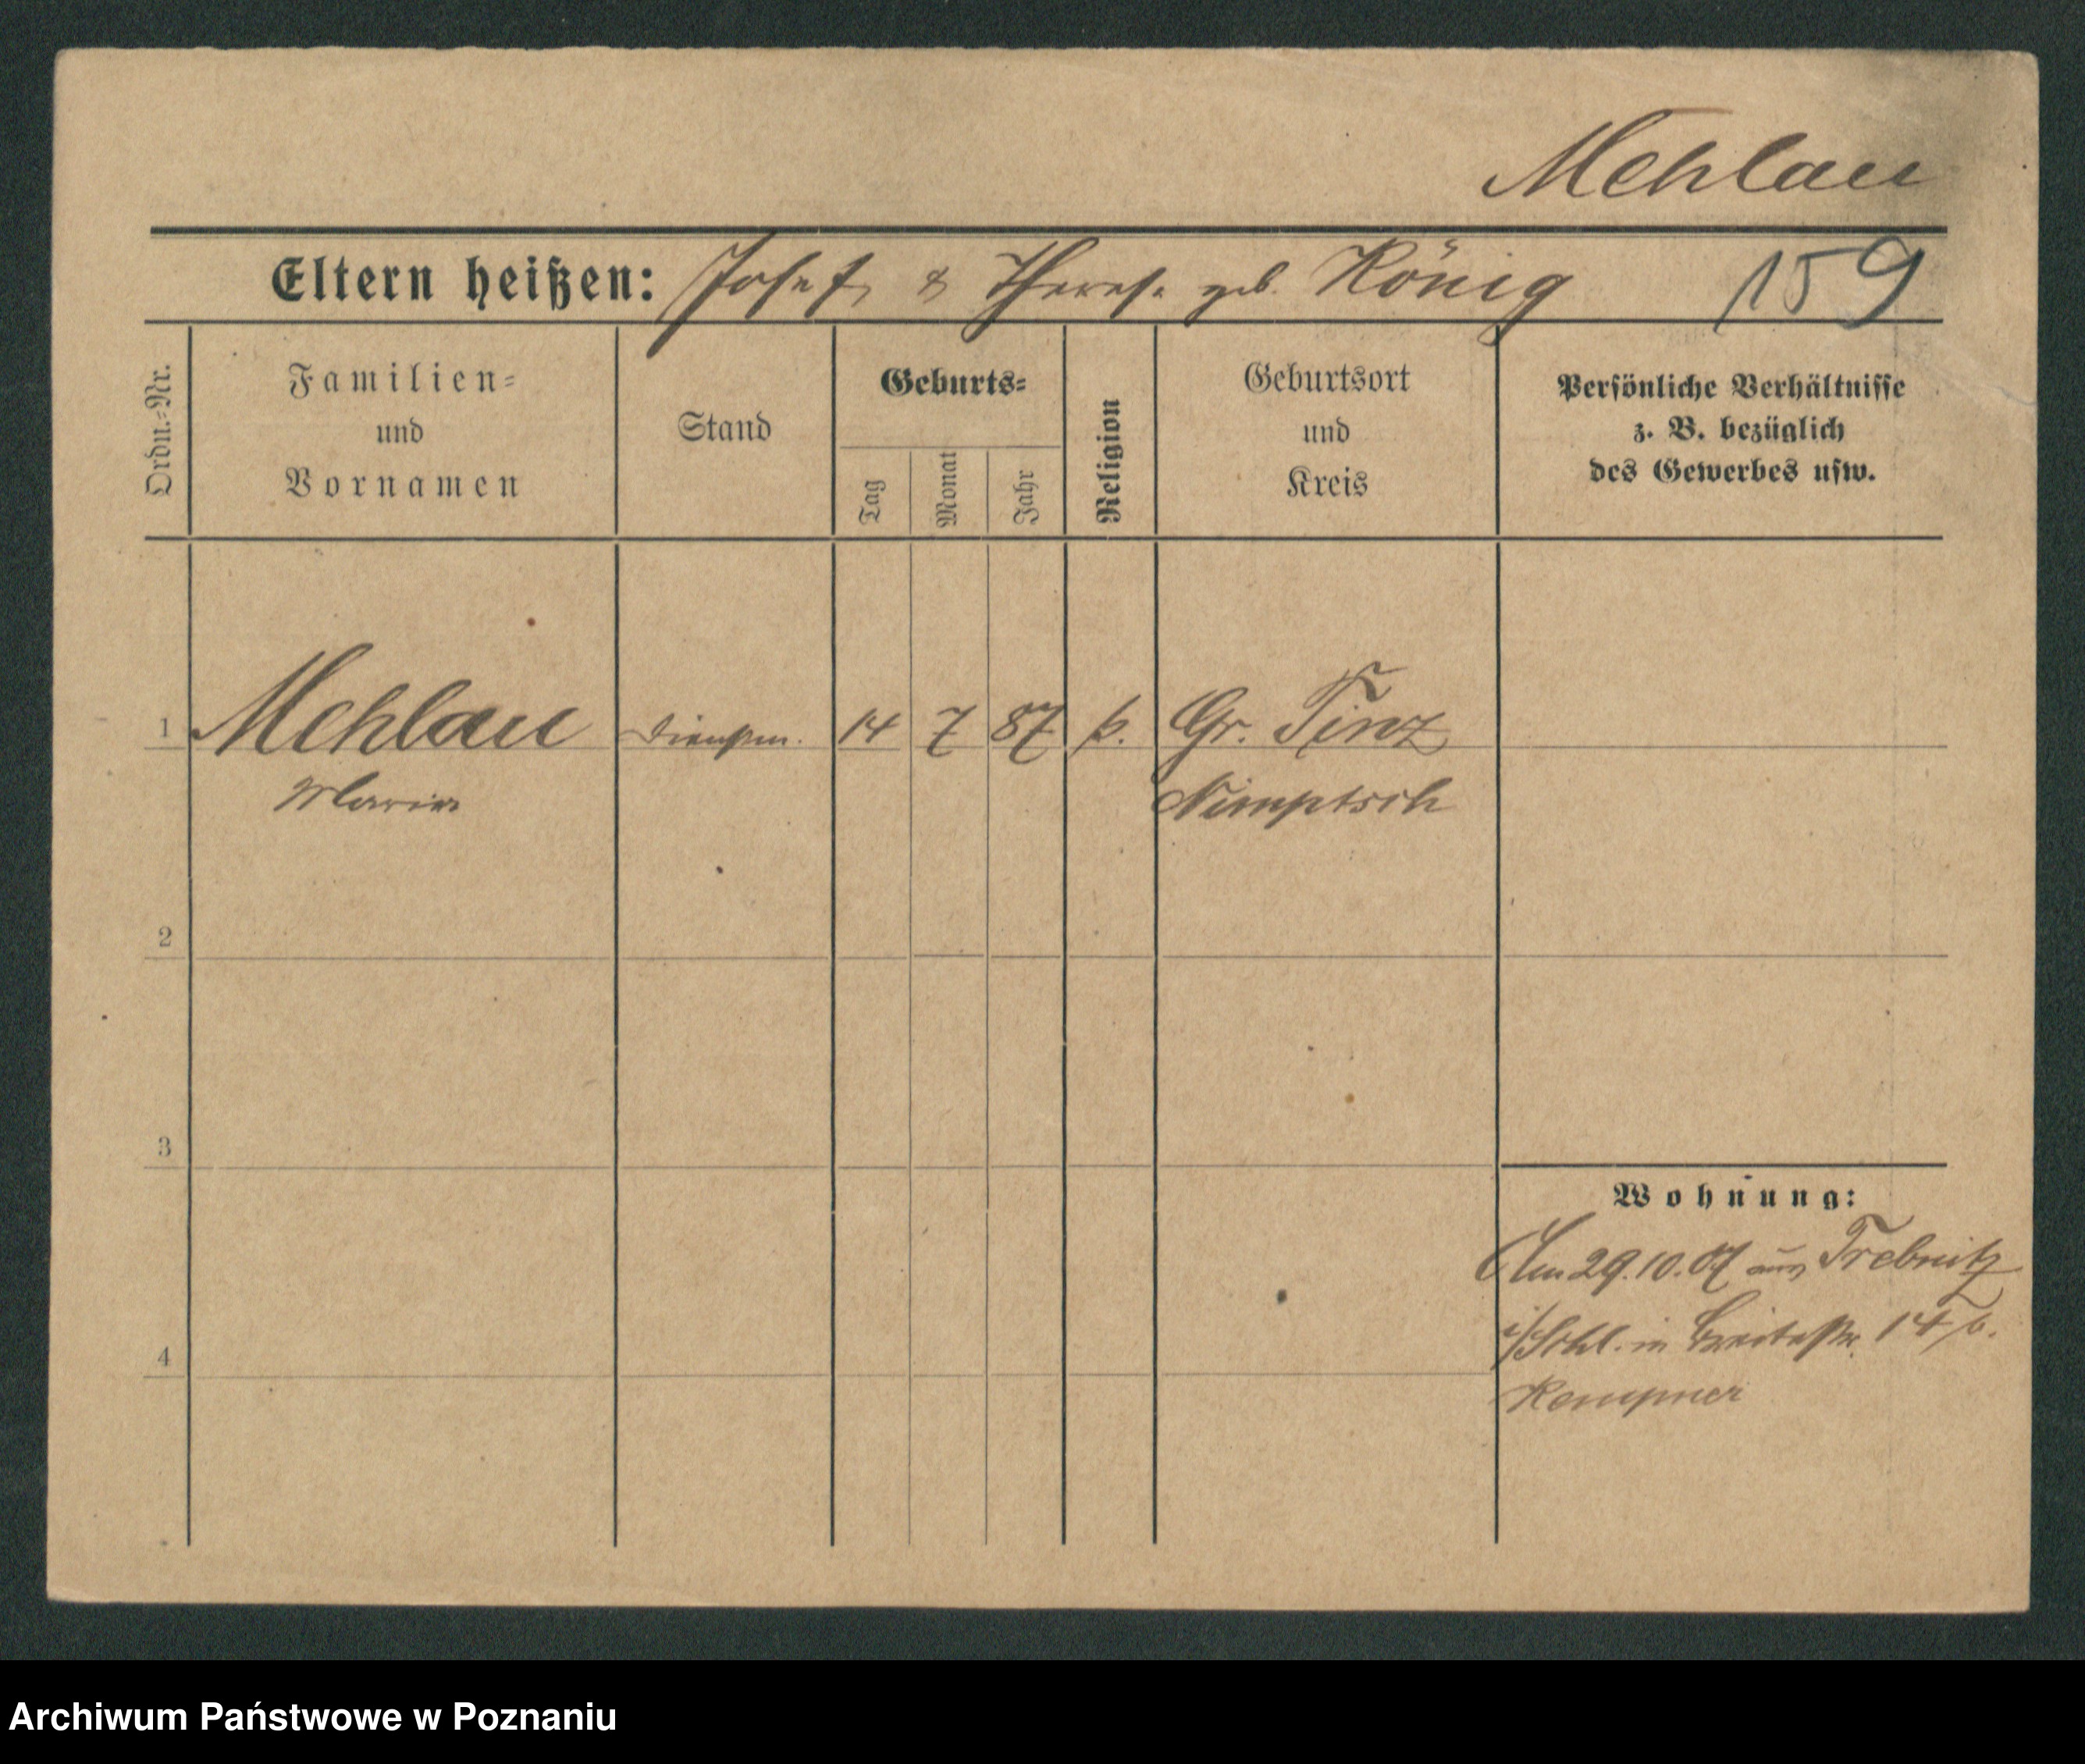 Mehlau
Eltern heißen: Josef & Therese geb. König 159
Ordn.-Nr.
Familien- und Vornamen
Stand
Geburts-
Tag
Monat
Jahr
Religion
Geburtsort und Kreis
Persönliche Verhältnisse
z. B. bezüglich
des Gewerbes usw.
1 Mehlau Dienstm. 14 7 87 k. Gr. Tinz
Maria Nimptsch
2
3
4
Wohnung:
Am 29.10.07 aus Trebnitz
i/Schl. in Breitestr. 14
Kempner
Archiwum Państwowe w Poznaniu